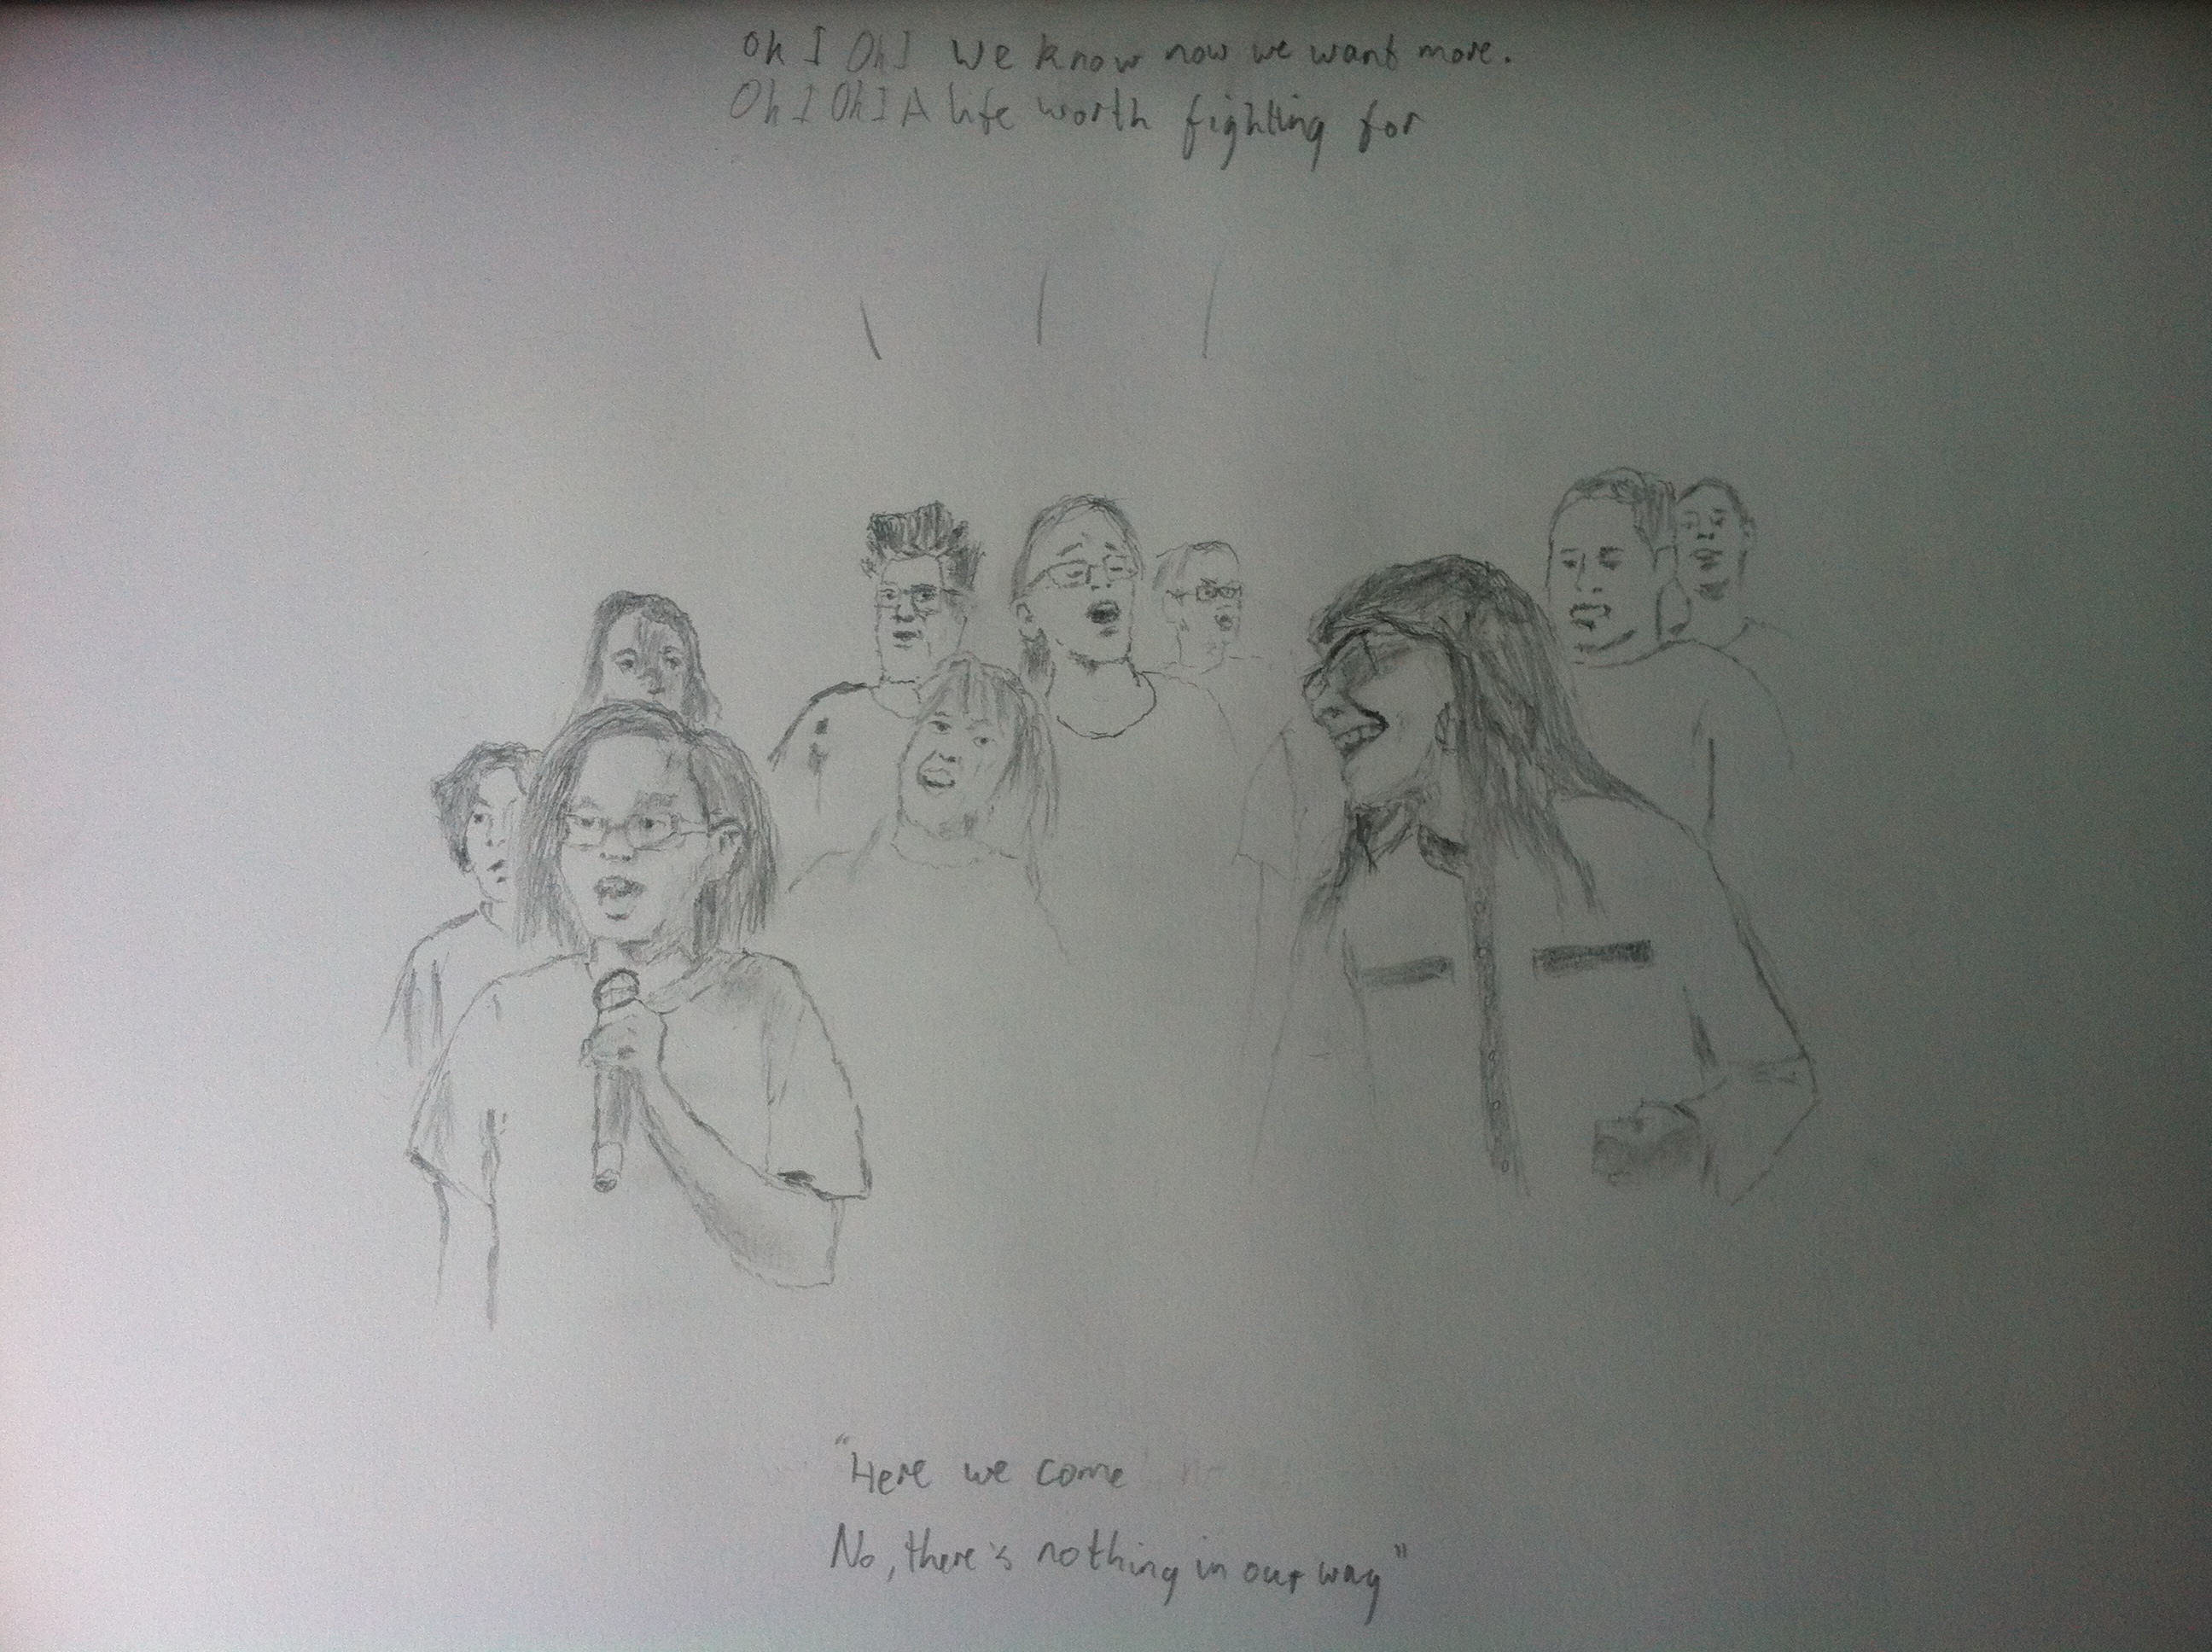 oh I Oh I We know now we want more.
Oh I Oh I A life worth fighting for
"Here we come
No, there's nothing in our way"